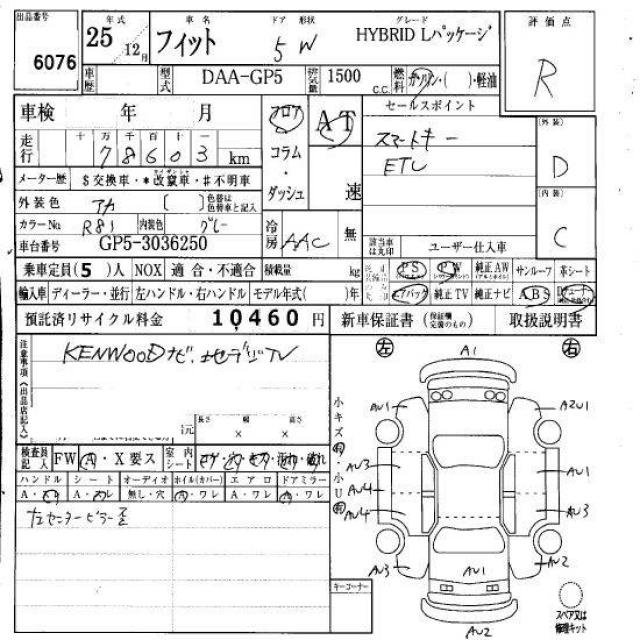 出品番号 年式 車名 ドア 形状 グレード 評価点
6076 25 12月 フィット 5 W HYBRID Lパッケージ R
車歴 型式 DAA-GP5 排気量 1500 C.C. 燃料 ガソリン・( )・軽油
車検 年 月 フロア AT セールスポイント
走行 十 万 千 百 十 一 コラム・ダッシュ 速 スマートキー (外装)
7 8 6 0 3 km ETC D
メーター歴 $交換車・*改竄車・#不明車 (内装)
外装色 アカ ( ) 色替は色替車と記入 C
カラーNo R81 内装色 グレー 冷房 AAC 無 該当車は丸印 ユーザー仕入車
車台番号 GP5-3036250
乗車定員(5)人 NOX 適合・不適合 積載量 kg PS PW 純正AW サンルーフ 革シート
輸入車 ディーラー・並行 左ハンドル・右ハンドル モデル年式( )年 エアバック 純正TV 純正ナビ ABS
預託済リサイクル料金 10,460 円 新車保証書 (保証欄完備のもの) 取扱説明書
注意事項(出品店記入) KENWOODナビ、地デジTV
長さ 幅 高さ
× ×
左 A1 右
AU1 A2U1
小キズ有・小U有
AU3 AU1
AU4
AU4 AU3
AU3 AU1 AU2
AU2
検査員記入 FW A・X要ス 室内シート コゲ・穴・キズ・汚れ・破れ
ハンドル シート オーディオ ホイル(カバー) エアロ ドアミラー
A・ワレ A・ワレ 無し・穴 A・ワレ A・ワレ A・ワレ
左センターピラー歪
キーコーナー
スペア又は修理キット